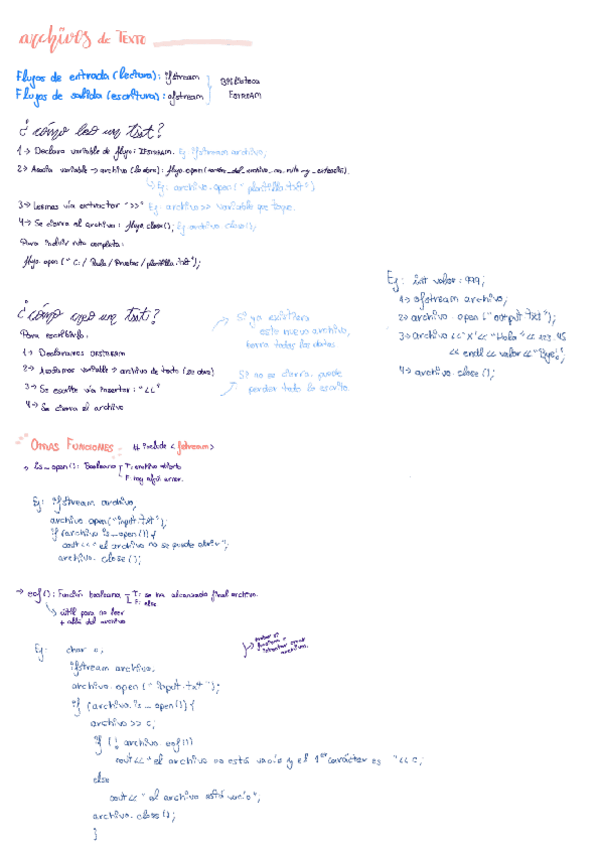 archivos de TEXTO
Flujos de entrada (lectura): ifstream
Flujos de salida (escritura): ofstream
Biblioteca
FSTREAM
¿cómo leo un txt?
1→ Declaro variable de flujo: IFSTREAM. Eg ifstream archivo;
2→ Asocia variable → archivo (lo abre): flujo.open(
Eg: archivo.open("plantilla.txt")
3→ Leemos vía extractor ">>" Eg: archivo >> variable que toque.
4→ Se cierra el archivo: flujo.close(); Eg archivo.close();
Para indicar ruta completa:
flujo.open("C:/Paula/Pruebas/plantilla.txt");
Eg: int valor: 999;
1→ ofstream archivo;
2→ archivo.open("output.txt");
3→ archivo <<'X'<< "Hola" << 123.45
<< endl << valor << "Bye";
4→ archivo.close();
¿cómo creo un txt?
Para escribirlo.
1→ Declaramos OFSTREAM
2→ Asociamos variable → archivo de texto (se abre)
3→ Se escribe vía insertor: "<<"
4→ Se cierra el archivo
Si ya existiera
este nuevo archivo,
borra todos los datos
Si no se cierra, puede
perder todo lo escrito
OTRAS FUNCIONES # include <fstream>
→ is_open(): Booleano T: archivo abierto
F: hay algún error.
Eg: ifstream archivo;
archivo.open("input.txt");
if (archivo.is_open()) {
cout << "el archivo no se puede abrir";
archivo.close();
→ eof(): Función booleana T: se ha alcanzado final archivo.
F: else
útil para no leer
+ allá del archivo
Eg: char c;
ifstream archivo;
archivo.open("input.txt");
if (archivo.is_open()) {
archivo >> c;
if (! archivo.eof())
cout << "el archivo no está vacío y el 1er carácter es " << c;
else
cout << "el archivo está vacío";
archivo.close();
}